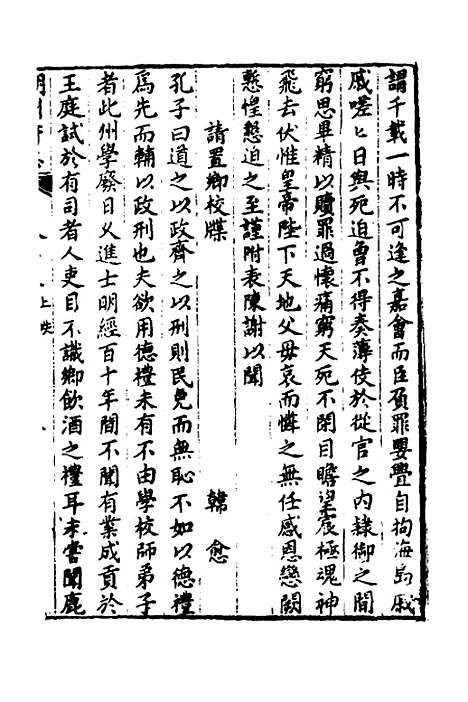 謂千載一時不可逢之嘉會而臣負罪嬰舋自拘海島戚
戚嗟〻日與死迫曾不得奏薄伎於從官之內隸御之間
窮思畢精以贖罪過懷痛窮天死不閉目瞻望宸極魂神
飛去伏惟皇帝陛下天地父母哀而憐之無任感恩戀闕
慙惶懇迫之至謹附表陳謝以聞
請置鄉校牒
韓愈
孔子曰道之以政齊之以刑則民免而無恥不如以德禮
爲先而輔以政刑也夫欲用德禮未有不由學校師弟子
者此州學廢日乆進士明經百十年間不聞有業成貢於
王庭試於有司者人吏目不識鄉飲酒之禮耳未嘗聞鹿